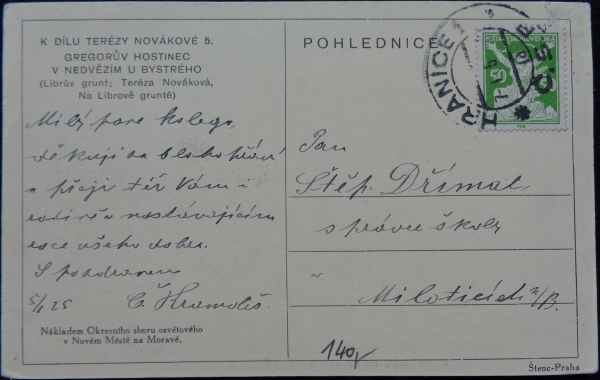 K DÍLU TERÉZY NOVÁKOVÉ 5.
GREGORŮV HOSTINEC
V NEDVĚZÍM U BYSTRÉHO
(Librův grunt; Teréza Nováková,
Na Librově gruntě)
Milý pane kolego,
děkuji za blahopřání
a přeji též Vám i
rodině v nastávajícím
roce všeho dobra.
S pozdravem
5/1 25 Č. Kramoliš
Nákladem Okresního sboru osvětového
v Novém Městě na Moravě.
POHLEDNICE
HRANICE
POSTA ČESKOSLOVENSKÁ
50
Pan
Štěp. Dřímal,
správce školy
v
Miloticích n/B.
140,-
Štenc-Praha